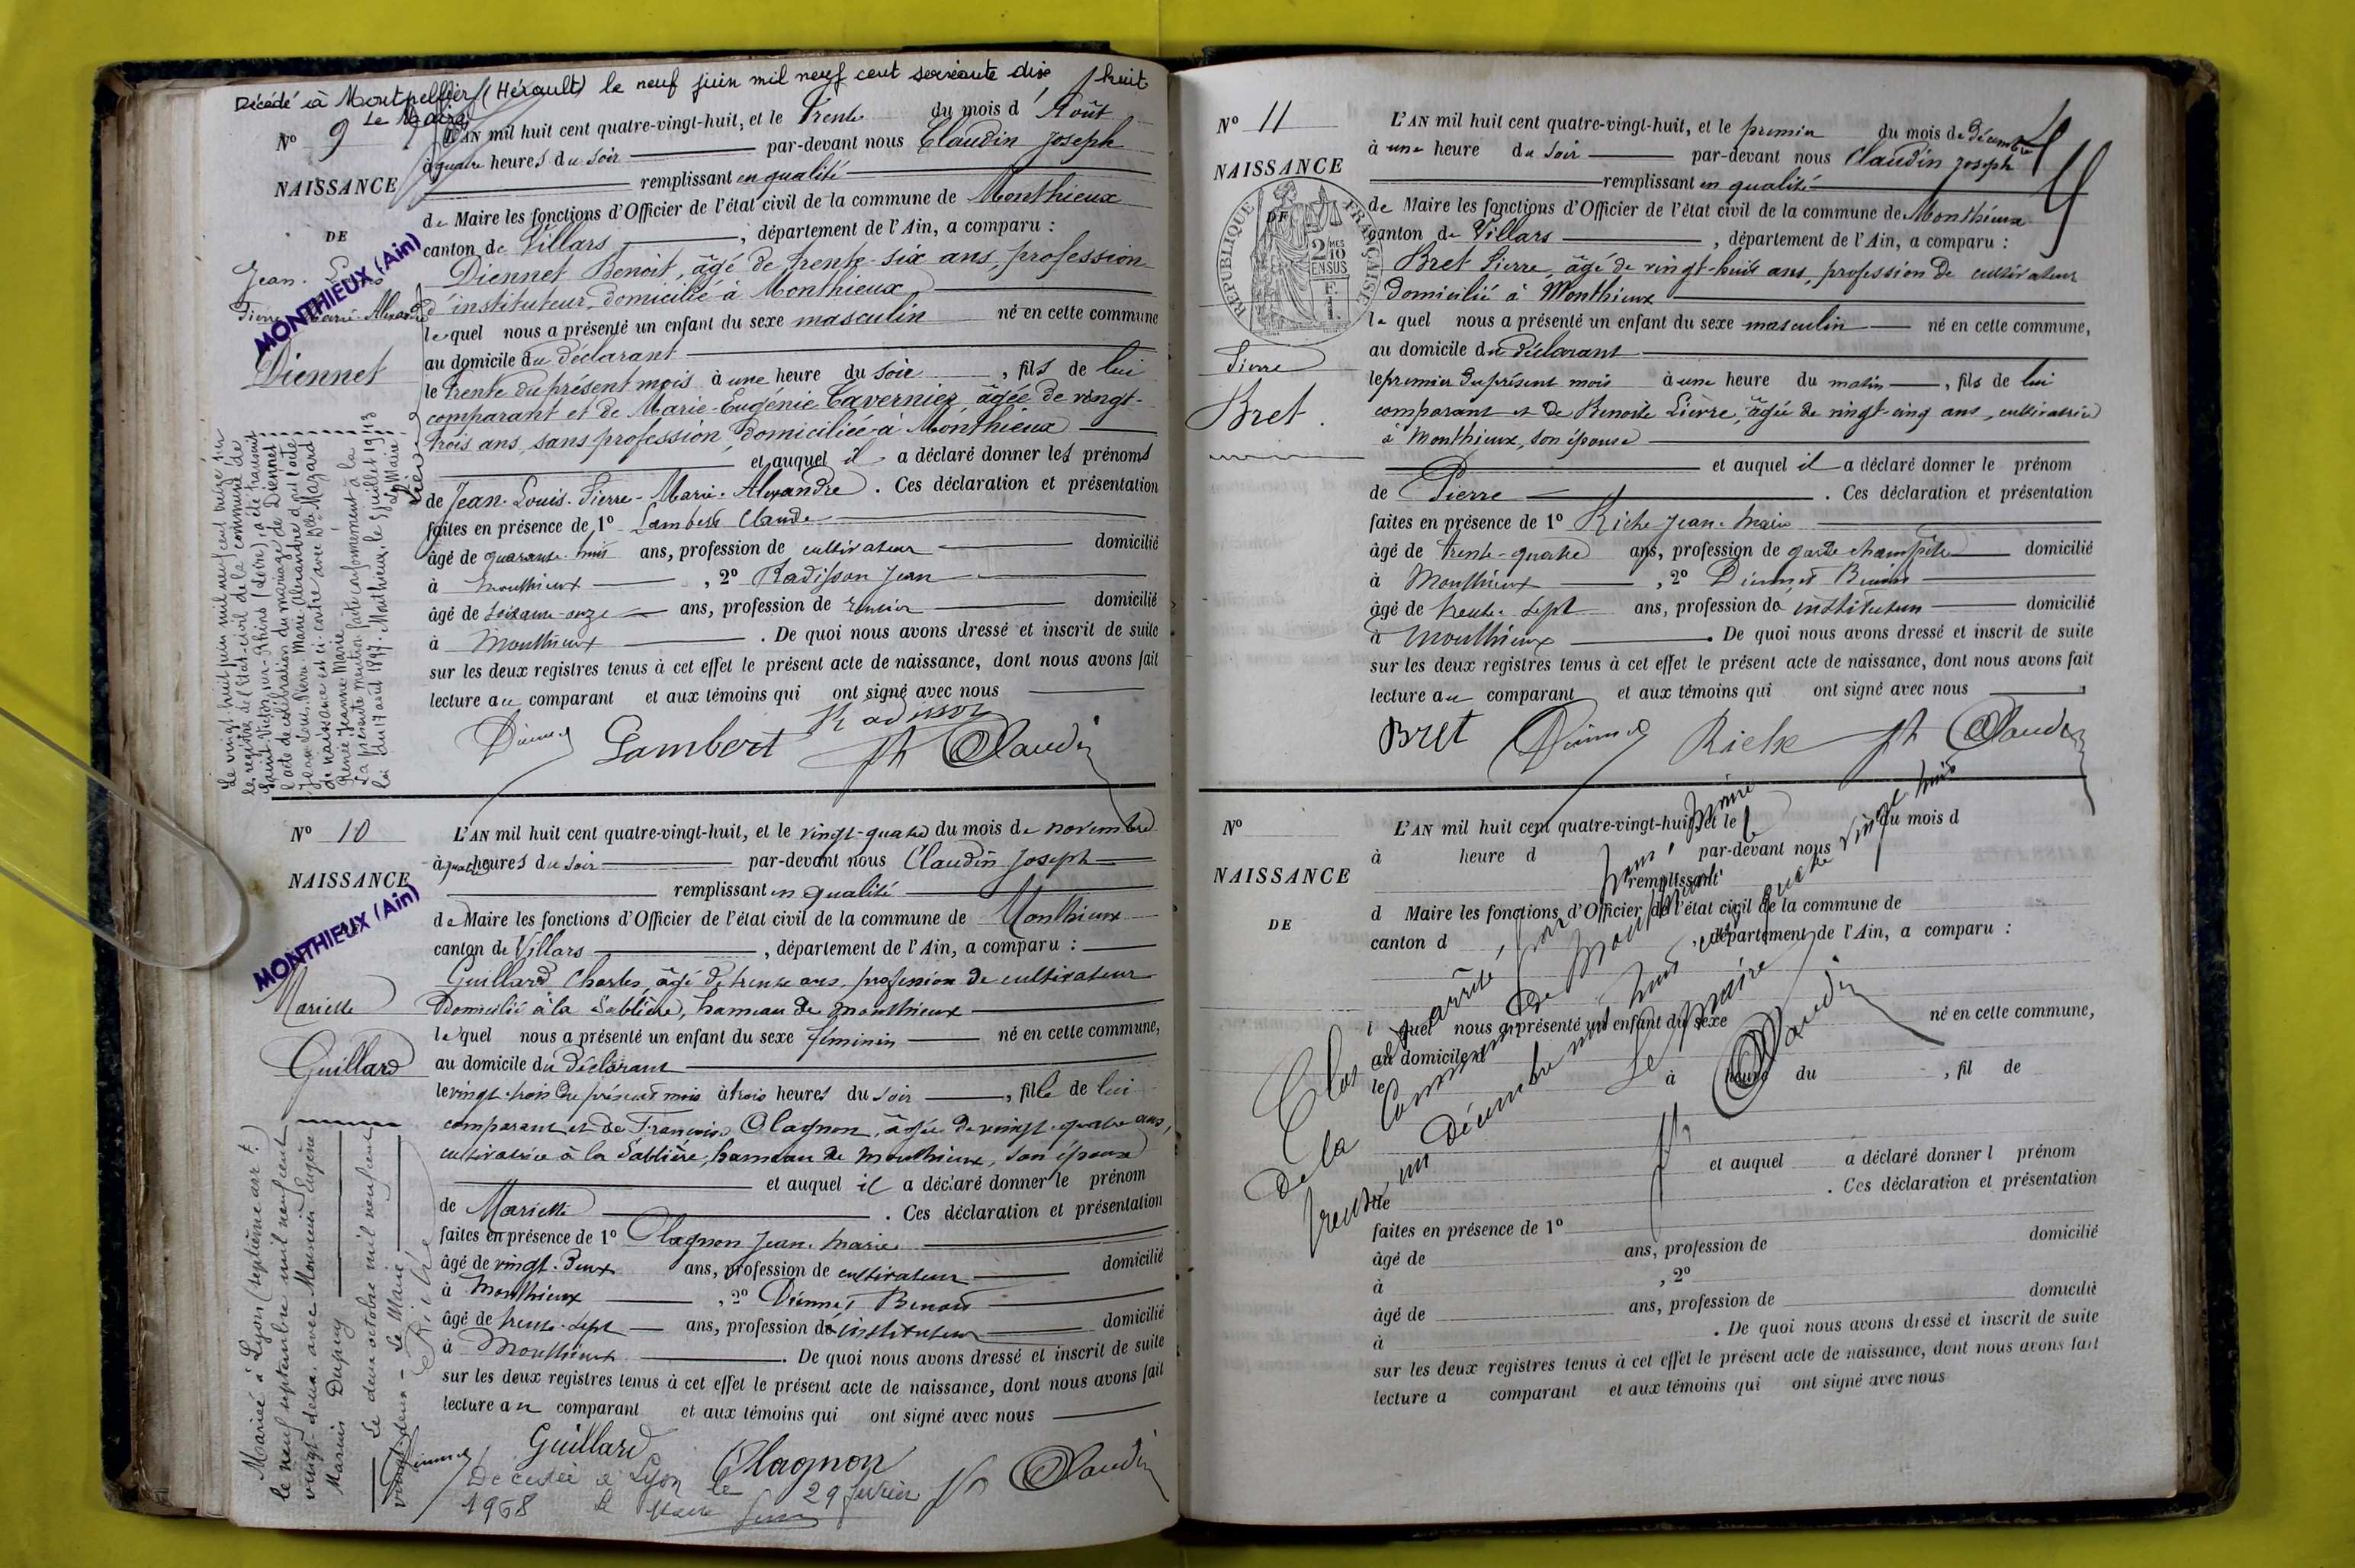 Décédé à Montpellier (Hérault) le neuf juin mil neuf cent soixante dix huit
Le Maire
N° 9
NAISSANCE
DE
Jean-Louis
Pierre-Marie-Alexandre
Diennet
MONTHIEUX (Ain)
L'AN mil huit cent quatre-vingt-huit, et le trente du mois d'Août
à quatre heures du soir par-devant nous Claudin Joseph
remplissant en qualité
de Maire les fonctions d'Officier de l'état civil de la commune de Monthieux
canton de Villars, département de l'Ain, a comparu :
Diennet Benoit, âgé de trente-six ans, profession
d'instituteur domicilié à Monthieux
lequel nous a présenté un enfant du sexe masculin né en cette commune
au domicile du déclarant
le trente du présent mois à une heure du soir, fils de lui
comparant et de Marie-Eugénie Tavernier âgée de vingt-
trois ans, sans profession, domiciliée à Monthieux
et auquel il a déclaré donner les prénoms
de Jean-Louis-Pierre-Marie-Alexandre. Ces déclaration et présentation
faites en présence de 1° Lambert Claude
âgé de quarante-huit ans, profession de cultivateur domicilié
à Monthieux, 2° Radisson Jean
âgé de soixante-onze ans, profession de rentier domicilié
à Monthieux. De quoi nous avons dressé et inscrit de suite
sur les deux registres tenus à cet effet le présent acte de naissance, dont nous avons fait
lecture au comparant et aux témoins qui ont signé avec nous
Diennet Lambert Radisson Jh Claudin
Le vingt huit juin mil neuf cent treize sur
les registres de l'Etat-civil de la commune de
Saint-Victor-sur-Rhins (Loire), a été transcrit
l'acte de célébration du mariage de Diennet
Jean Louis Pierre Marie Alexandre dont l'acte
de naissance est ci-contre avec Mlle Mazard
Renée Jeanne Marie
La présente mention faite conformément à la
loi du 17 août 1897. Monthieux, le 9 juillet 1913
Le Maire
N° 10
NAISSANCE
DE
MONTHIEUX (Ain)
Mariette
Guillard
L'AN mil huit cent quatre-vingt-huit, et le vingt-quatre du mois de novembre
à quatre heures du soir par-devant nous Claudin Joseph
remplissant en qualité
de Maire les fonctions d'Officier de l'état civil de la commune de Monthieux
canton de Villars, département de l'Ain, a comparu :
Guillard Charles, âgé de trente ans, profession de cultivateur
Domicilié à la Sablière, hameau de Monthieux
lequel nous a présenté un enfant du sexe féminin né en cette commune,
au domicile du déclarant
le vingt-trois du présent mois à trois heures du soir, fille de lui
comparant et de Françoise Clagnon, âgée de vingt-quatre ans,
cultivatrice à la Sablière, hameau de Monthieux, son épouse
et auquel il a déclaré donner le prénom
de Mariette. Ces déclaration et présentation
faites en présence de 1° Clagnon Jean-Marie
âgé de vingt-deux ans, profession de cultivateur domicilié
à Monthieux, 2° Diennet Benoit
âgé de trente-sept ans, profession d'instituteur domicilié
à Monthieux. De quoi nous avons dressé et inscrit de suite
sur les deux registres tenus à cet effet le présent acte de naissance, dont nous avons fait
lecture au comparant et aux témoins qui ont signé avec nous
Diennet Guillard Clagnon Jh Claudin
Décédée à Lyon le 29 février
1968 Le Maire
Mariée à Lyon (septième arr.t)
le neuf septembre mil neuf cent
vingt-deux avec Monsieur Eugène
Marius Dupuy
Le deux octobre mil neuf cent
vingt-deux - Le Maire
Riche
N° 11
NAISSANCE
DE
RÉPUBLIQUE FRANÇAISE
2 10MES
EN SUS
Pierre
Bret
L'AN mil huit cent quatre-vingt-huit, et le premier du mois de décembre
à une heure du soir par-devant nous Claudin Joseph
remplissant en qualité
de Maire les fonctions d'Officier de l'état civil de la commune de Monthieux
canton de Villars, département de l'Ain, a comparu :
Bret Pierre, âgé de vingt-huit ans, profession de cultivateur
domicilié à Monthieux
lequel nous a présenté un enfant du sexe masculin né en cette commune,
au domicile du déclarant
le premier du présent mois à une heure du matin, fils de lui
comparant et de Benoite Lièvre, âgée de vingt-cinq ans, cultivatrice
à Monthieux, son épouse
et auquel il a déclaré donner le prénom
de Pierre. Ces déclaration et présentation
faites en présence de 1° Riche Jean-Marie
âgé de trente-quatre ans, profession de garde champêtre domicilié
à Monthieux, 2° Diennet Benoit
âgé de trente-sept ans, profession d'instituteur domicilié
à Monthieux. De quoi nous avons dressé et inscrit de suite
sur les deux registres tenus à cet effet le présent acte de naissance, dont nous avons fait
lecture au comparant et aux témoins qui ont signé avec nous
Bret Diennet Riche Jh Claudin
N°
NAISSANCE
DE
L'AN mil huit cent quatre-vingt-huit, et le du mois d
à heure d par-devant nous
remplissant
d Maire les fonctions d'Officier de l'état civil de la commune de
canton d, département de l'Ain, a comparu :
l quel nous a présenté un enfant du sexe né en cette commune,
au domicile d
le à heure du, fil de
et auquel a déclaré donner l prénom
de. Ces déclaration et présentation
faites en présence de 1°
âgé de ans, profession de domicilié
à, 2°
âgé de ans, profession de domicilié
à. De quoi nous avons dressé et inscrit de suite
sur les deux registres tenus à cet effet le présent acte de naissance, dont nous avons fait
lecture a comparant et aux témoins qui ont signé avec nous
Clos et arrêté, par nous, Maire
de la Commune de Monthieux le
trente un décembre mil huit cent quatre vingt huit
Le Maire
Jh Claudin